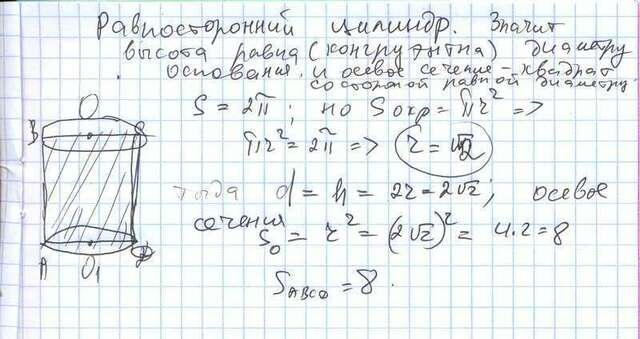 Равносторонний цилиндр. Значит
высота равна (конгруэнтна) диаметру
основания. и осевое сечение – квадрат
со стороной равной диаметру
S = 2π ; но S окр = πr² =>
πr² = 2π => r = √2
тогда d = h = 2r = 2√2 ; осевое
сечения
S₀ = r² = (2√2)² = 4·2 = 8
S ABCD = 8.
O
B
A
O₁